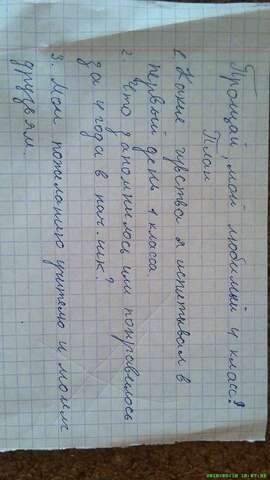 Прощай, мой любимый 4 класс!
План
1. Какие чувства я испытывал в
первый день 1 класса.
2. Что запомнилось или понравилось
за 4 года в нач. шк?
3. Мои пожелания учителю и моим
друзьям.